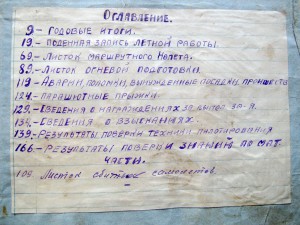 Оглавление.
9 – Годовые итоги.
19 – Поденная запись летной работы.
69 – Листок маршрутного полета.
89 – Листок огневой подготовки.
119 Аварии, поломки, вынужденные посадки,
124 – Парашютные прыжки.
129 – Сведения о награждениях
– Сведения о взысканиях.
139 – Результаты поверки техники пилотирования
166 – Результаты поверки знаний по мат.
части.
109 Листок сбитых самолетов.